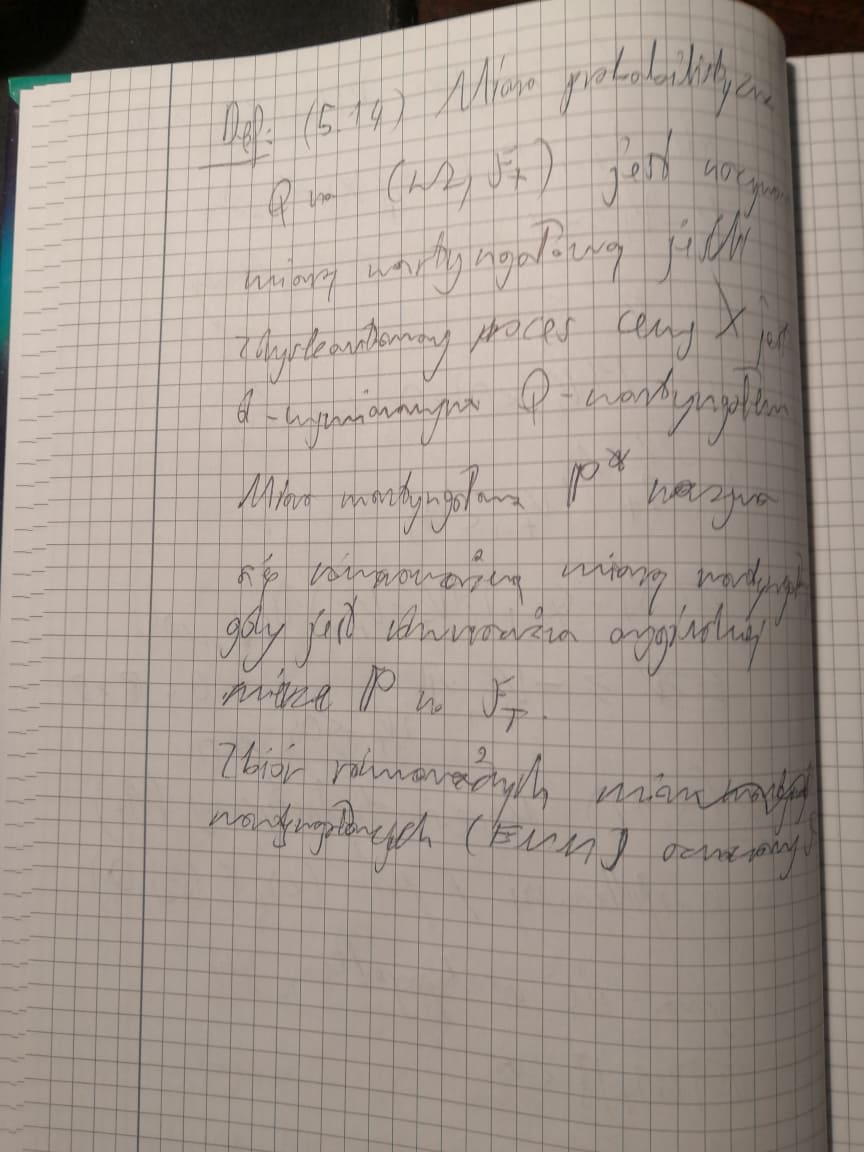 Def: (5.14) Miara probabilistyczna
Q na (Ω, F_T) jest nazywana
miarą martyngałową jeśli
zdyskontowany proces ceny X jest
d-wymiarowym Q-martyngałem
Miara martyngałowa P* nazywa
się równoważną miarą martyngał
gdy jest równoważna oryginalnej
mierze P na F_T.
Zbiór równoważnych miar
martyngałowych (EMM) oznaczamy